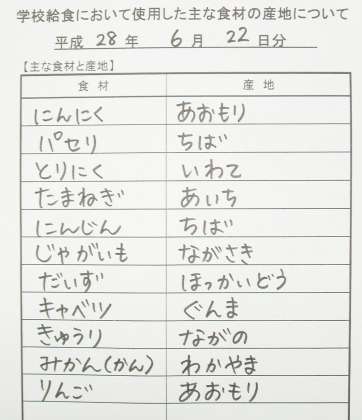 学校給食において使用した主な食材の産地について
平成 28 年 6 月 22 日分
【主な食材と産地】
食材 産地
にんにく あおもり
パセリ ちば
とりにく いわて
たまねぎ あいち
にんじん ちば
じゃがいも ながさき
だいず ほっかいどう
キャベツ ぐんま
きゅうり ながの
みかん(かん) わかやま
りんご あおもり